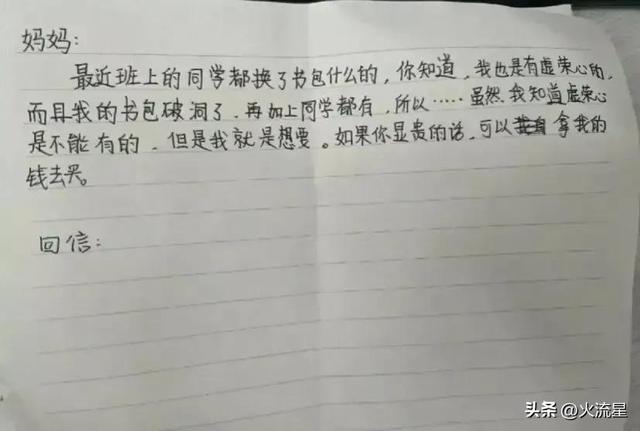 妈妈：
最近班上的同学都换了书包什么的，你知道，我也是有虚荣心的，
而且我的书包破洞了，再加上同学都有，所以……虽然我知道虚荣心
是不能有的，但是我就是想要。如果你显贵的话，可以拿我的
钱去买。
回信：
头条 @火流星